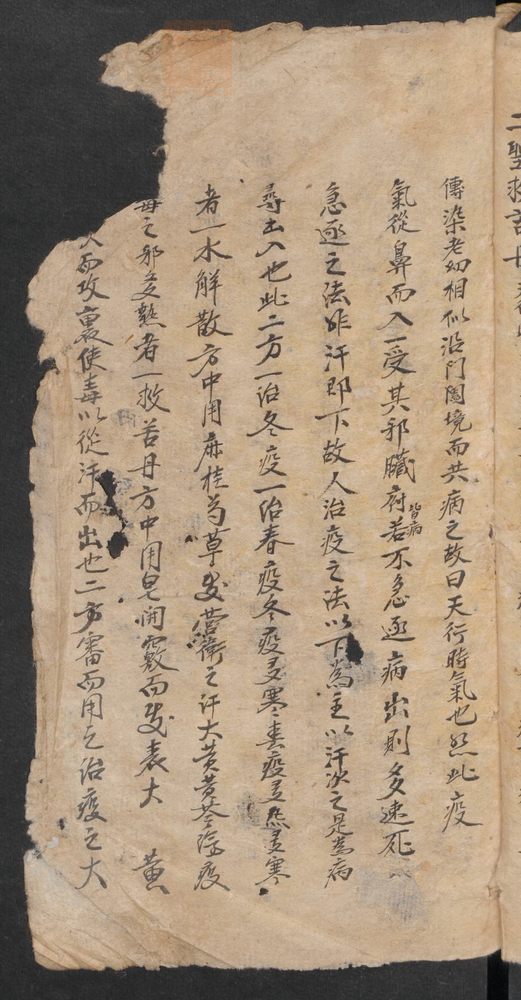 二聖救苦
傳染老幼相似沿門闔境而共病之故曰天行時氣也然此疫
氣從鼻而入一受其邪臟府皆病若不急逐病出則多速死
急逐之法非汗即下故人治疫之法以下為主以汗次之是為病
尋出入也此二方一治冬疫一治春疫冬疫多寒春疫多熱多寒
者一水解散方中用麻桂芍草发營衛之汗大黄黄芩瀉疫
毒之邪多熱者一救苦丹方中用皂開竅而发表大黄
而攻裏使毒以從汗而出也二方審而用之治疫之大